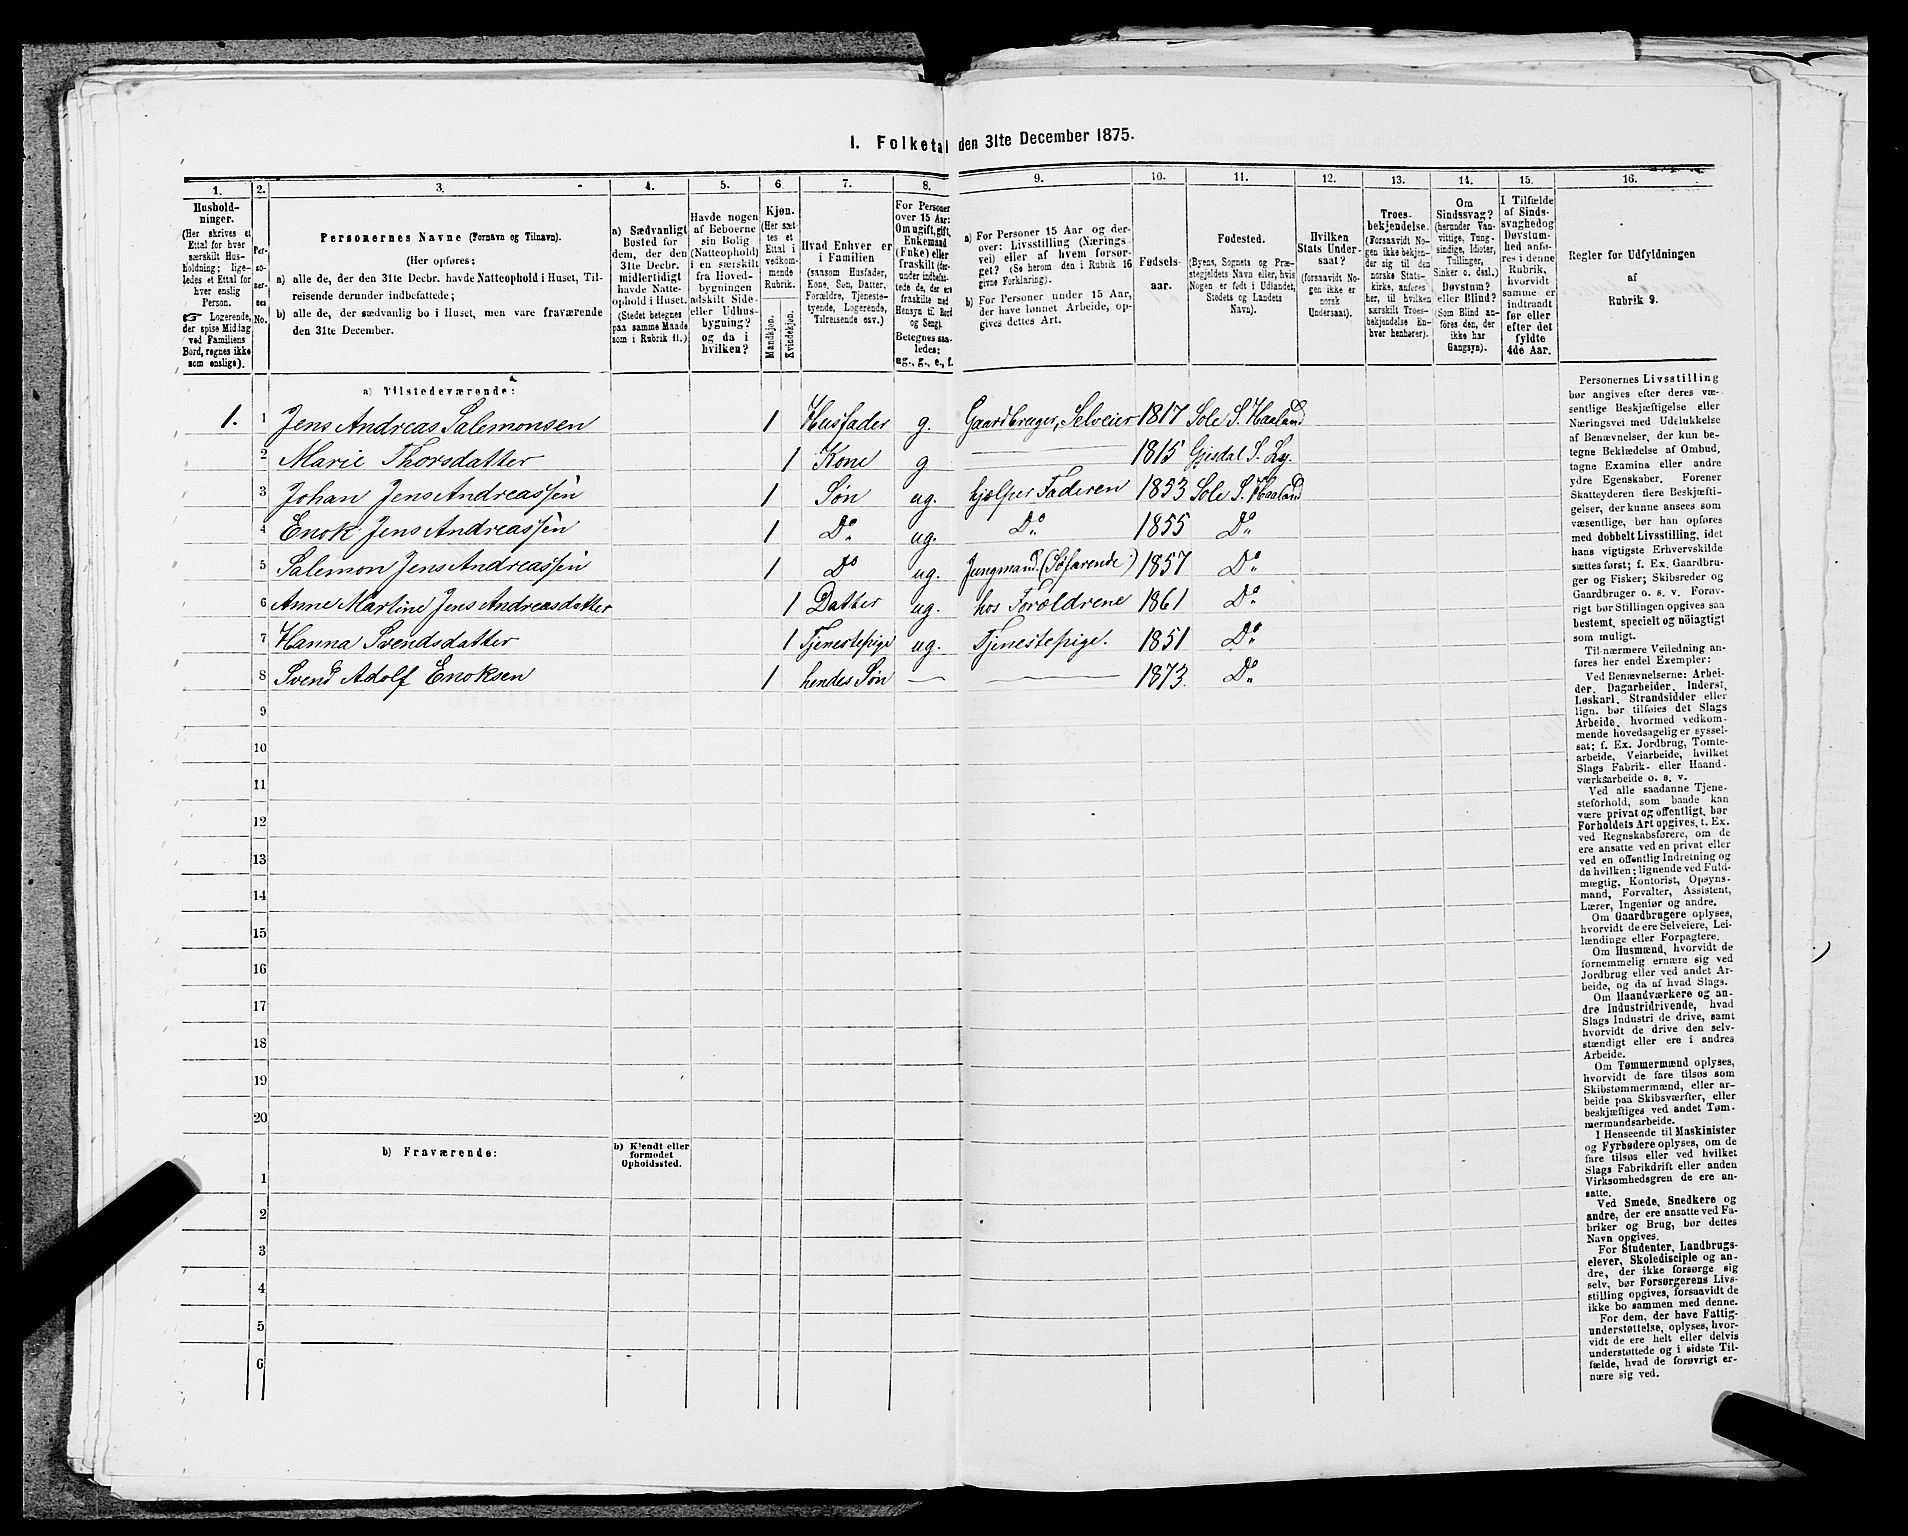 I. Folketal den 31te December 1875.
1. 2. 3. 4. 5. 6 7. 8. 9. 10. 11. 12. 13. 14. 15. 16.
Hushold-
ninger.
(Her skrives et
Ettal for hver
særskilt Hus-
holdning; lige-
ledes et Ettal for
hver enslig
Person.
☞ Logerende,
der spise Middag
ved Familiens
Bord, regnes ikke
som enslige).
Per-
so-
ner-
nes
No.
Personernes Navne (Fornavn og Tilnavn).
(Her opføres:
a) alle de, der den 31te Decbr. havde Natteophold i Huset, Til-
reisende derunder indbefattede;
b) alle de, der sædvanlig bo i Huset, men vare fraværende
den 31te December.
a) Sædvanligt
Bosted for
dem, der den
31te Decbr.
midlertidigt
havde Natte-
ophold i Huset.
(Stedet betegnes
paa samme Maade
som i Rubrik 11.)
Havde nogen
af Beboerne
sin Bolig
(Natteophold)
i en særskilt
fra Hoved-
bygningen
adskilt Side-
eller Udhus-
bygning?
og da i
hvilken?
Kjøn.
(Her sæt-
tes et
Ettal i
vedkom-
mende
Rubrik.
Mandkjøn.
Kvindekjøn.
Hvad Enhver er
i Familien
(saasom Husfader,
Kone, Søn, Datter,
Forældre, Tjeneste-
tyende, Logerende,
Tilreisende osv.)
For Personer
over 15 Aar:
Om ugift, gift,
Enkemand
(Enke) eller
fraskilt (der-
under indbefat-
tede de, der ere
fraskilte med
Hensyn til Bord
og Seng).
Betegnes saa-
ledes:
ug., g., e., f.
a) For Personer 15 Aar og der-
over: Livsstilling (Nærings-
vei) eller af hvem forsør-
get? (Se herom den i Rubrik 16
givne Forklaring).
b) For Personer under 15 Aar,
der have lønnet Arbeide, op-
gives dettes Art.
Fødsels-
aar.
Fødested.
(Byens, Sognets og Præ-
stegjeldets Navn eller, hvis
Nogen er født i Udlandet,
Stedets og Landets
Navn).
Hvilken
Stats Under-
saat?
(forsaavidt No-
gen ikke er
norsk
Undersaat).
Troes-
bekjendelse.
(Forsaavidt No-
gen ikke bekjen-
der sig til den
norske Stats-
kirke, anføres
her, til hvilken
særskilt Troes-
bekjendelse En-
hver henhører).
Om
Sindssvag?
(herunder Van-
vittige, Tung-
sindige, Idioter,
Tullinger,
Sinker o. desl.)
Døvstum?
eller Blind?
(Som Blind an-
føres den, der
ikke har
Gangsyn).
I Tilfælde
af Sinds-
svaghed og
Døvstum-
hed anfø-
res i denne
Rubrik,
hvorvidt
samme er
indtraadt
før eller
efter det
fyldte
4de Aar.
Regler for Udfyldningen
af
Rubrik 9.
a) Tilstedeværende:
1. 1 Jens Andreas Salemonsen 1 Husfader g. Gaardbruger, Selveier 1817 Sole S. Haaland
2 Marie Thorsdatter 1 Kone g — 1815 Gjesdal S. Ly.
3 Johan Jens Andreassen 1 Søn ug. hjælper Faderen 1853 Sole S. Haaland
4 Enok Jens Andreassen 1 Do ug. Do 1855 Do
5 Salemon Jens Andreassen 1 Do ug. Jungmand. (Søfarende) 1857 Do
6 Anne Martine Jens Andreasdatter 1 Datter ug. hos Forældrene 1861 Do
7 Hanna Svendsdatter 1 Tjenestepige ug. Tjenestepige. 1851 Do
8 Svend Adolf Enoksen 1 hendes Søn — — 1873. Do
9
10
11
12
13
14
15
16
17
18
19
20
b) Fraværende:
b) Kjendt eller
formodet
Opholdssted.
1
2
3
4
5
6
Personernes Livsstilling
bør angives efter deres væ-
sentlige Beskjæftigelse eller
Næringsvei med Udelukkelse
af Benævnelser, der kun be-
tegne Beklædelse af Ombud,
tagne Examina eller andre
ydre Egenskaber. Forener
Skatteyderen flere Beskjæfti-
gelser, der kunne ansees som
væsentlige, bør han opføres
med dobbelt Livsstilling, idet
hans vigtigste Erhvervskilde
sættes først; f. Ex. Gaardbru-
ger og Fisker; Skibsreder og
Gaardbruger o. s. v. Forøv-
rigt bør Stillingen opgives saa
bestemt, specielt og nöiagtigt
som muligt.
Til nærmere Veiledning an-
føres her endel Exempler:
Ved Benævnelserne: Arbei-
der, Dagarbeider, Inderst,
Løskarl, Strandsidder eller
lign. bør tilføies det Slags
Arbeide, hvormed vedkom-
mende hovedsagelig er syssel-
sat; f. Ex. Jordbrug, Tomte-
arbeide, Veiarbeide, hvilket
Slags Fabrik- eller Haand-
værksarbeide o. s. v.
Ved alle saadanne Tjene-
steforhold, som baade kan
være privat og offentligt, bør
Forholdets Art opgives, t. Ex.
ved Regnskabsførere, om de
ere ansatte ved en privat eller
ved en offentlig Indretning og
da hvilken; lignende ved Fuld-
mægtig, Kontorist, Opsyns-
mand, Forvalter, Assistent,
Lærer, Ingeniør og andre.
Om Gaardbrugere oplyses,
hvorvidt de ere Selveiere, Lei-
lændinge eller Forpagtere.
Om Husmænd, hvorvidt de
fornemmelig ernære sig ved
Jordbrug eller ved andet Ar-
beide, og da af hvad Slags.
Om Haandværkere og an-
dre Industridrivende, hvad
Slags Industri de drive, samt
hvorvidt de drive den selv-
stændigt eller ere i andres
Arbeide.
Om Tømmermænd oplyses,
hvorvidt de fare tilsøs som
Skibstømmermænd, eller ar-
beide paa Skibsværfter, eller
beskjæftiges ved andet Tøm-
mermandsarbeide.
I Henseende til Maskinister
og Fyrbødere oplyses, om de
fare tilsøs eller ved hvilket
Slags Fabrikdrift eller anden
Virksomhedsgren de ere an-
satte.
Ved Smede, Snedkere og
andre, der ere ansatte ved Fa-
briker og Brug, bør dettes
Navn opgives.
For Studenter, Landbrugs-
elever, Skoledisciple og an-
dre, der ikke forsørge sig
selv, bør Forsørgerens Livs-
stilling opgives, forsaavidt de
ikke bo sammen med denne.
For dem, der have Fattig-
understøttelse, oplyses, hvor-
vidt de ere helt eller delvis
understøttede og i sidste Til-
fælde, hvad de forøvrigt er-
nære sig ved.